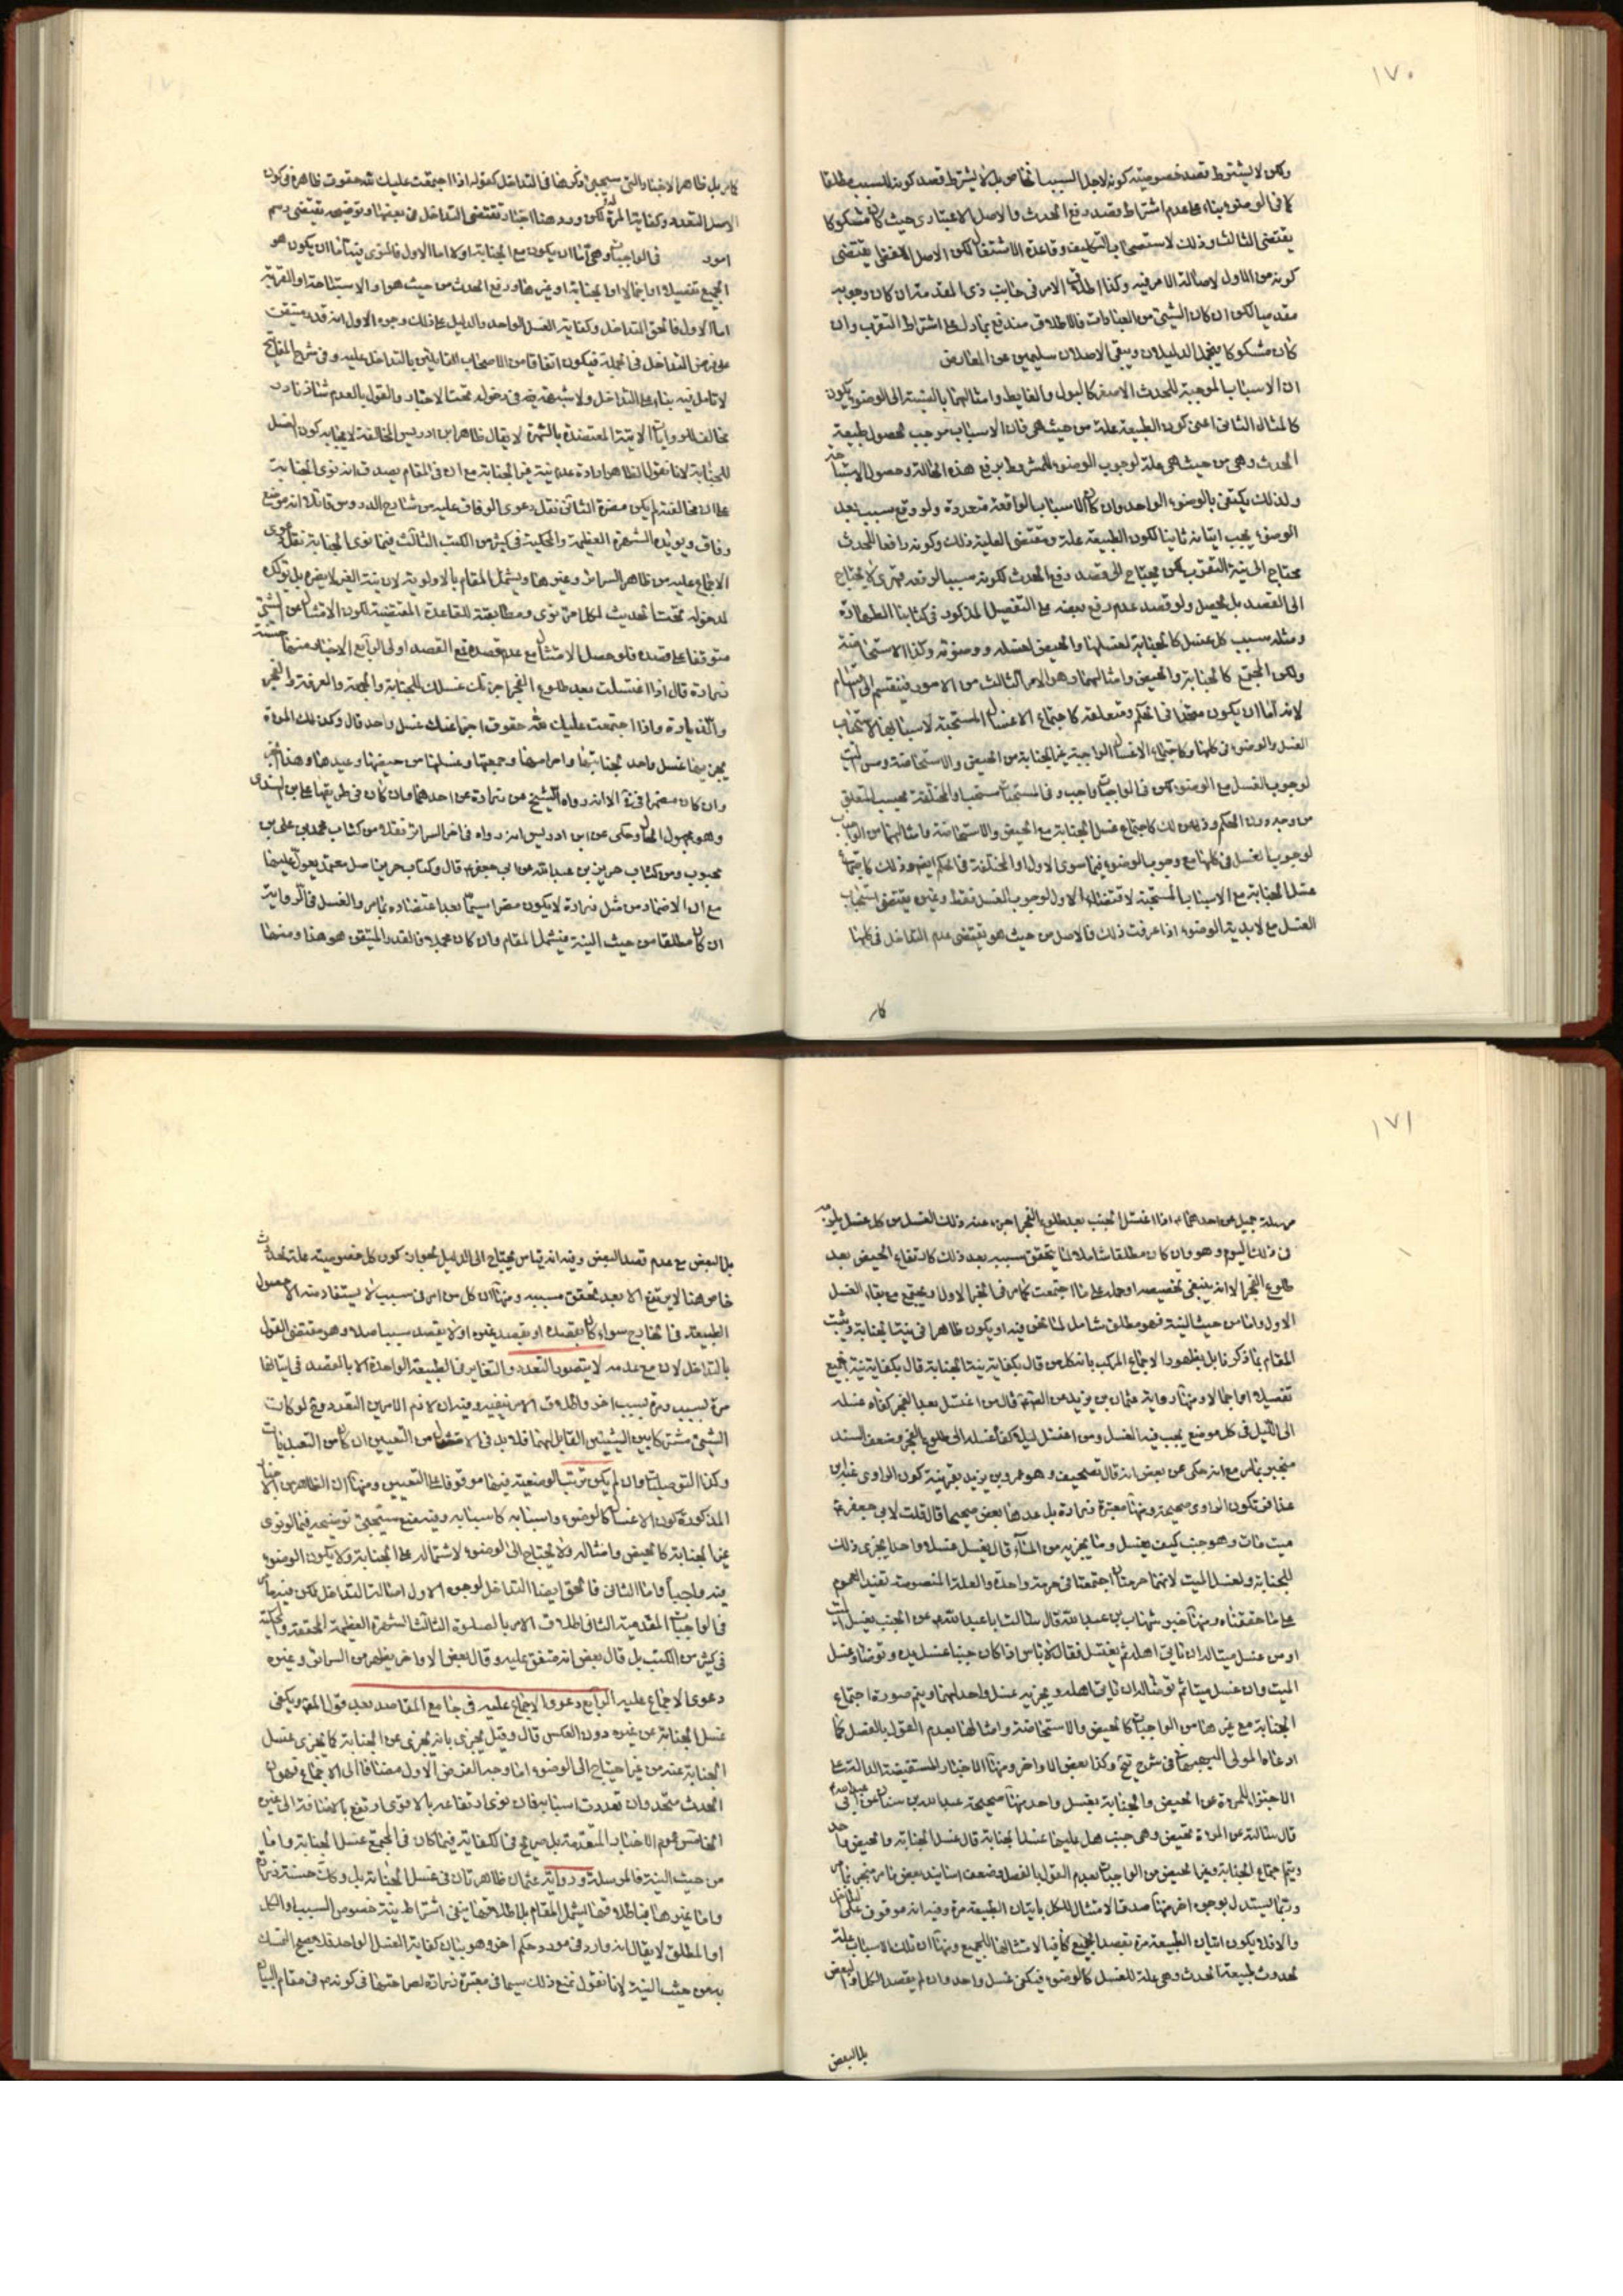 ١٧٠
ولكن لا يشترط قصد خصوصيته كونه لاجل السبب الخاص بل لا يشترط قصد كونه للسبب مطلقا
كما فى الوضوء بناء على عدم اشتراط قصد رفع الحدث والاصل الاعتبارى حيث كان مشكوكا
يقتضى الثالث وذلك لاستصحاب التكليف وقاعدة الاشتغال لكن الاصل اللفظى يقتضى
كونه من الاول لاصالة الامر فيه وكذا اطلاق الامر فى جانب ذى المقدمة ان كان وجوبه
مقدميا لكن ان كان الشيئ من العبادات فالاطلاق مندفع بما دل على اشتراط التقرب وان
كان مشكوكا يتحمل الدليلان ويبقى الاصلان سليمين عن المعارض
ان الاسباب الموجبة للحدث الاصغر كالبول والغايط وامثالهما بالنسبة الى الوضوء يكون
كالمثال الثانى اعنى كون الطبيعة علة من حيث هى فان الاسباب موجب لحصول طبيعة
الحدث وهى من حيث هى علة لوجوب الوضوء المشروط برفع هذه الحالة وحصول الاستباحة
ولذلك يكتفى بالوضوء الواحد وان كان الاسباب الواقعة متعددة ولو وقع سبب بعد
الوضوء يجب اتيانه ثانيا لكون الطبيعة علة ومقتضى العلية ذلك وكونه رافعا للحدث
محتاج الى نية التقرب لكن يحتاج الى قصد رفع الحدث لكونه سببا لرفعه قهرى لا يحتاج
الى القصد بل يحصل ولو قصد عدم رفع بعضه على التفصيل المذكور فى كتابنا الطهارة
ومثله سبب كل غسل كالجنابة لغسلها والحيض لغسله ووضوئه وكذا الاستحاضة
ولكون المجتمع كالجنابة والحيض وامثالهما وهو الامر الثالث من الامور فينقسم الى اقسام
لانه اما ان يكون متحدا فى الحكم ومتعلقه كاجتماع الاغسال المستحبة لاسبابها لاستحباب
الغسل والوضوء فى كلها وكاجتماع الاغسال الواجبة غير الجنابة من الحيض والاستحاضة ومس الميت
لوجوب الغسل مع الوضوء لكن فى الواجبات واجب وفى المستحبات مستحب او المختلفة بحسب المتعلق
من وجه دون الحكم وذلك كاجتماع غسل الجنابة مع الحيض والاستحاضة وامثالهما من الواجب
لوجوب الغسل فى كلها مع وجوب الوضوء فيما سوى الاول او المختلفة فى الحكم ايضا وذلك كاجتماع
غسل الجنابة مع الاسباب المستحبة لاقتضاء الاول لوجوب الغسل فقط وغيره يقتضى استحباب
الغسل مع لابدية الوضوء اذا عرفت ذلك فالاصل من حيث هو يقتضى عدم التداخل فى كلها
كامر
كامر بل ظاهر الاخبار التى سيجيئ ذكرها فى التداخل كقوله اذا اجتمعت عليك لله حقوق ظاهرة فى كون
الاصل التعدد وكفاية المرة لكن ورد هنا اخبار تقتضى التداخل فى بعضها وتوضيحه يقتضى رسم
امور فى الواجبات وهى اما ان يكون مع الجنابة او لا اما الاول فالمنوى فيه اما ان يكون هو
الجميع تفصيلا او اجمالا او الجنابة او غيرها ورفع الحدث من حيث هو او الاستباحة او القربة
اما الاول فالحق التداخل وكفاية الغسل الواحد والدليل على ذلك وجوه الاول انه قدر متيقن
على فرض التداخل فى الجملة فيكون اتفاقا من الاصحاب القايلين بالتداخل عليه وفى شرح المفاتيح
لا تامل فيه بناء على التداخل ولا شبهة فيه فى دخوله تحت الاخبار والقول بالعدم شاذ نادر
مخالف للروايات الاتية المعتضدة بالشهرة لا يقال ظاهر ابن ادريس المخالفة لايجابه كون الغسل
للجنابة لانا نقول الظاهر ارادة عدم نية غير الجنابة مع ان فى المقام يصدق انه نوى الجنابة
على ان مخالفته لم يكن مضرة الثانى نقل دعوى الوفاق عليه من شارح الدروس قائلا انه موضع
وفاق ويؤيده الشهرة العظيمة والحكية فى كثير من الكتب الثالث فيما نوى الجنابة نقل دعوى
الاجماع عليه من ظاهر السرائر وغيرها ويشمل المقام بالاولوية لان نية الغير لا يضره بل يؤكده
لدخوله تحت الحديث لكل امرء ما نوى ومطابقته للقاعدة المقتضية لكون الامتثال عن الشيئ
متوقفا على قصده فلو حصل الامتثال مع عدم قصده فمع القصد اولى الرابع الاخبار منها حسنة
زرارة قال اذا اغتسلت بعد طلوع الفجر اجزئك غسلك للجنابة والجمعة والعرفة والنحر
والزيارة واذا اجتمعت عليك لله حقوق اجزئها عنك غسل واحد قال وكذلك المرءة
يجزيها غسل واحد لجنابتها واحرامها وجمعتها وغسلها من حيضها وعيدها وهذا الخبر
وان كان مضمرا فى الا انه رواه الشيخ عن زرارة عن احدهما وان كان فى طريقها على بن السندى
وهو مجهول الحال وحكى عن ابن ادريس انه رواه فى اخر السرائر نقلا من كتاب محمد بن على بن
محبوب ومن كتاب حريز بن عبد الله عن ابى جعفر قال وكتاب حريز اصل معتمد يعول عليها
مع ان الاضمار من مثل زرارة لا يكون مضرا سيما بعد اعتضاده بما مر والغسل فى الرواية
ان كان مطلقا من حيث النية فيشمل المقام وان كان مجملا فالقدر المتيقن هو هذا ومنها
١٧١
مرسلة جميل عن احدهما اذا اغتسل الجنب بعد طلوع الفجر اجزء عنه ذلك الغسل من كل غسل يلزمه
فى ذلك اليوم وهو وان كان مطلقا شاملا لما يتحقق سببه بعد ذلك كارتفاع الحيض بعد
طلوع الفجر الا انه ينبغى تخصيصه او حمله على ما اجتمعت كما مر فى الخبر الاول ويجتمع مع بقاء الغسل
الاول واما من حيث النية فهو مطلق شامل لما نحن فيه او يكون ظاهرا فى نية الجنابة ويثبت
المقام بما ذكرنا بل بظهور الاجماع المركب بان كل من قال بكفاية نية الجنابة قال بكفاية نية الجميع
تفصيلا او اجمالا ومنها رواية عثمان بن يزيد عن الصادق قال من اغتسل بعد الفجر كفاه غسله
الى الليل فى كل موضع يجب فيه الغسل ومن اغتسل ليلا كفاه غسله الى طلوع الفجر وضعف السند
منجبر بما مر مع انه حكى عن بعض انه قال تصحيف وهو عمر بن يزيد بقرينة كون الراوى عنه ابن
عذافر فتكون الراوى صحيحة ومنها معتبرة زرارة بل عدها بعض صحيحا قال قلت لابى جعفر
ميت مات وهو جنب كيف يغسل وما يجزيه من الماء قال يغسل غسلا واحدا يجزى ذلك
للجنابة ولغسل الميت لانهما حرمتان اجتمعتا فى حرمة واحدة والعلة المنصوصة تفيد العموم
على ما حققناه ومنها خبر شهاب بن عبد ربه قال سالت ابا عبد الله عن الجنب يغسل الميت
او من غسل ميتا له ان ياتى اهله ثم يغتسل فقال لا باس اذا كان جنبا غسل يده وتوضأ وغسل
الميت وان غسل ميتا ثم توضأ له ان ياتى اهله ويجزيه غسل واحد لهما ويتم صورة اجتماع
الجنابة مع غيرها من الواجبات كالحيض والاستحاضة وامثالها بعدم القول بالفصل كما
ادعاه المولى البهبهانى فى شرح تيح وكذا بعض الاواخر ومنها الاخبار المستفيضة الدالة على
الاجتزاء للمرءة عن الحيض والجنابة بغسل واحد منها صحيحة عبد الله بن سنان عن ابى عبد الله
قال سالته عن المرءة تحيض وهى جنب هل عليها غسل الجنابة قال غسل الجنابة والحيض واحد
ويتم اجتماع الجنابة وغير الحيض من الواجبات بعدم القول بالفصل وضعف اسانيد بعض ما مر منجبر بما مر
وربما يستدل بوجوه اخر منها صدق الامتثال للكل باتيان الطبيعة مرة وفيه انه موقوف على التداخل
والا فلا يكون اتيان الطبيعة مرة بقصد الجميع كافيا لامتثالها الجميع ومنها ان تلك الاسباب علة
لحدوث طبيعة الحدث وهى علة للغسل كالوضوء فيكفى غسل واحد وان لم يقصد الكل او البعض
بل البعض
بل البعض مع عدم قصد البعض وفيه انه قياس يحتاج الى الدليل لجواز كون كل خصوصيته علة لحدث
خاص هنا لا يرتفع الا بعد تحقق مسببه ومنها ان كل من امر فى سبب لا يستفاد منه الا حصول
الطبيعة فى الخارج سواء كان بقصده او بقصد غيره او لا يقصد سببا صلا وهو مقتضى القول
بالتداخل لان مع عدمه لا يتصور التعدد والتغاير فى الطبيعة الواحدة الا بالقصد فى اتيانها
مرة لسبب ومرة لسبب اخر واطلاق الامر ينفيه وفيه ان لازم الامرين التعدد ومع لو كانت
الشيئ مشتركا بين الشيئين القابل لهما فلا بد فى الامتثال من التعيين ان كان من التعبديات
وكذا التوصليات وان لم يكن ترتب الوضعية فيها موقوفا على التعيين ومنها ان الظاهر من الاخبار
المذكورة كون الاغسال كالوضوء واسبابه كاسبابه وفيه منع سيجيئ توضيحه فيما لو نوى
غير الجنابة كالحيض وامثاله ولا يحتاج الى الوضوء لاشتماله على الجنابة ولا يكون الوضوء
فيه واجبا واما الثانى فالحق ايضا التداخل لوجوه الاول اصالة التداخل لكن فيما
فى الواجبات المقدمية الثانى اطلاق الامر بالصلوة الثالث الشهرة العظيمة المحققة والحكية
فى كثير من الكتب بل قال بعض انه متفق عليه وقال بعض الاواخر يظهر من السرائر وغيره
دعوى الاجماع عليه الرابع دعوى الاجماع عليه فى جامع المقاصد بعد قول المصنف ويكفى
غسل الجنابة عن غيره دون العكس قال وقيل يجزى بانه يجزى عن الجنابة كما يجزى غسل
الجنابة عنه من غير احتياج الى الوضوء اما وجه الفرض الاول مضافا الى الاجماع فهو ان
الحدث متحد وان تعددت اسبابه فان نوى ارتفاعه بالاقوى ارتفع بالاضافة الى غيره
الخامس عموم الاخبار المتقدمة بل صريح فى الكفاية فيما كان فى الجميع غسل الجنابة واما
من حيث النية فالمرسلة ورواية عثمان ظاهرتان فى غسل الجنابة بل وكانت حسنة زرارة
واما غيرها فباطلاقها يشمل المقام بل اطلاقها ينفى اشتراط نية خصوص السبب او الكل
او المطلق لا يقال انه وارد فى مورد حكم اخر وهو بيان كفاية الغسل الواحد فلا يصح التمسك
به من حيث النية لانا نقول نمنع ذلك سيما فى معتبرة زرارة لصراحتها فى كونه فى مقام البيان